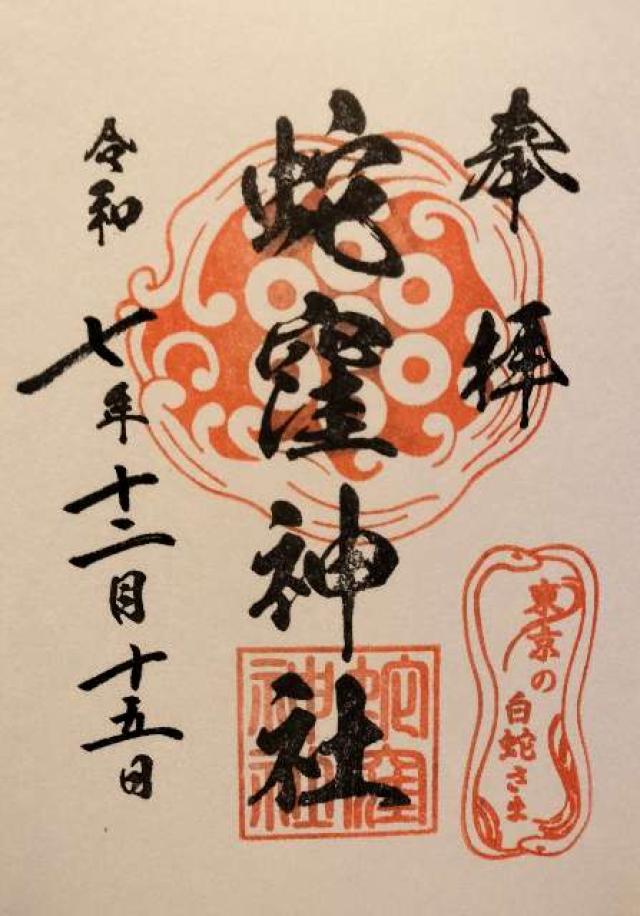 奉拝
蛇窪神社
令和七年十二月十五日
蛇窪
神社
東京の
白蛇さま